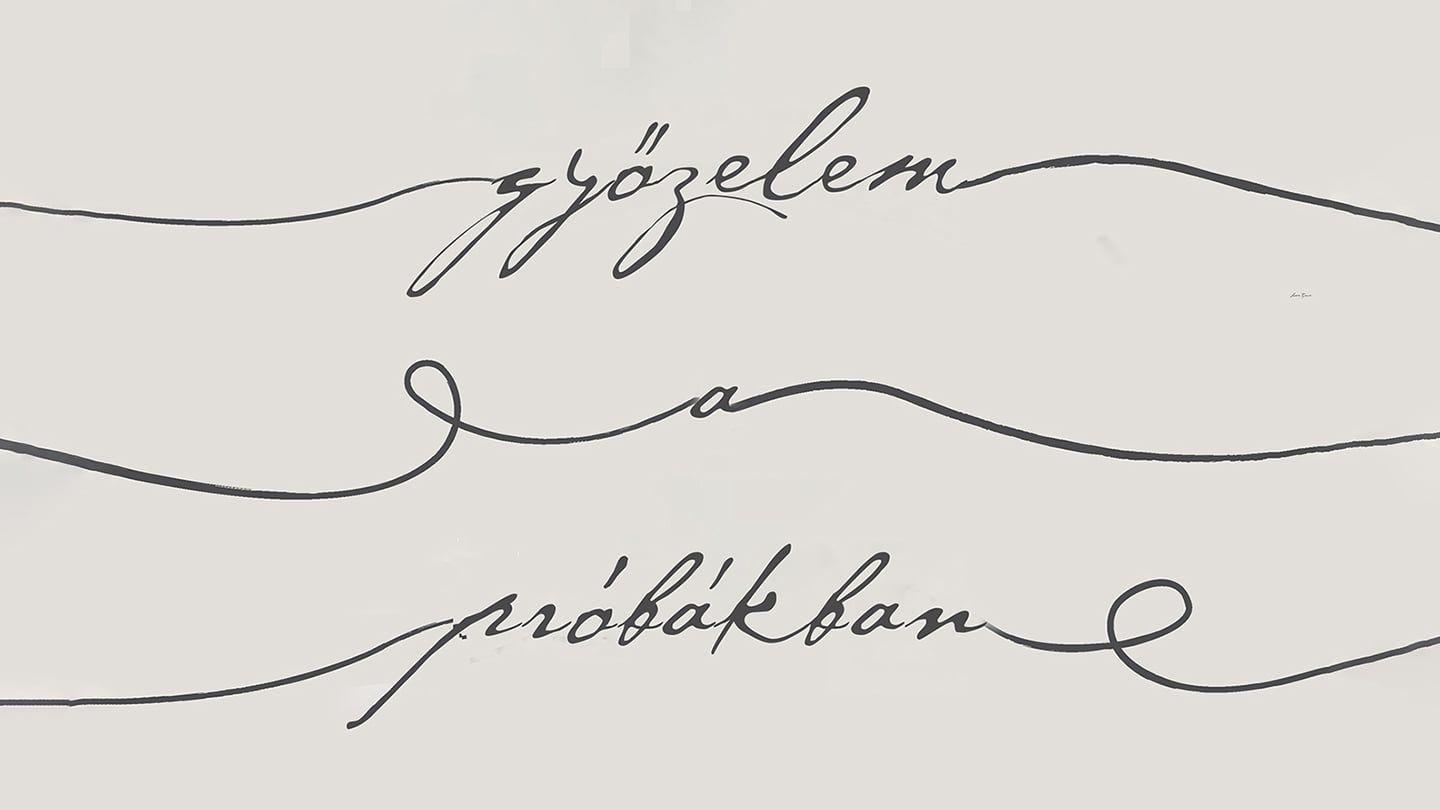 győzelem
a
próbákban